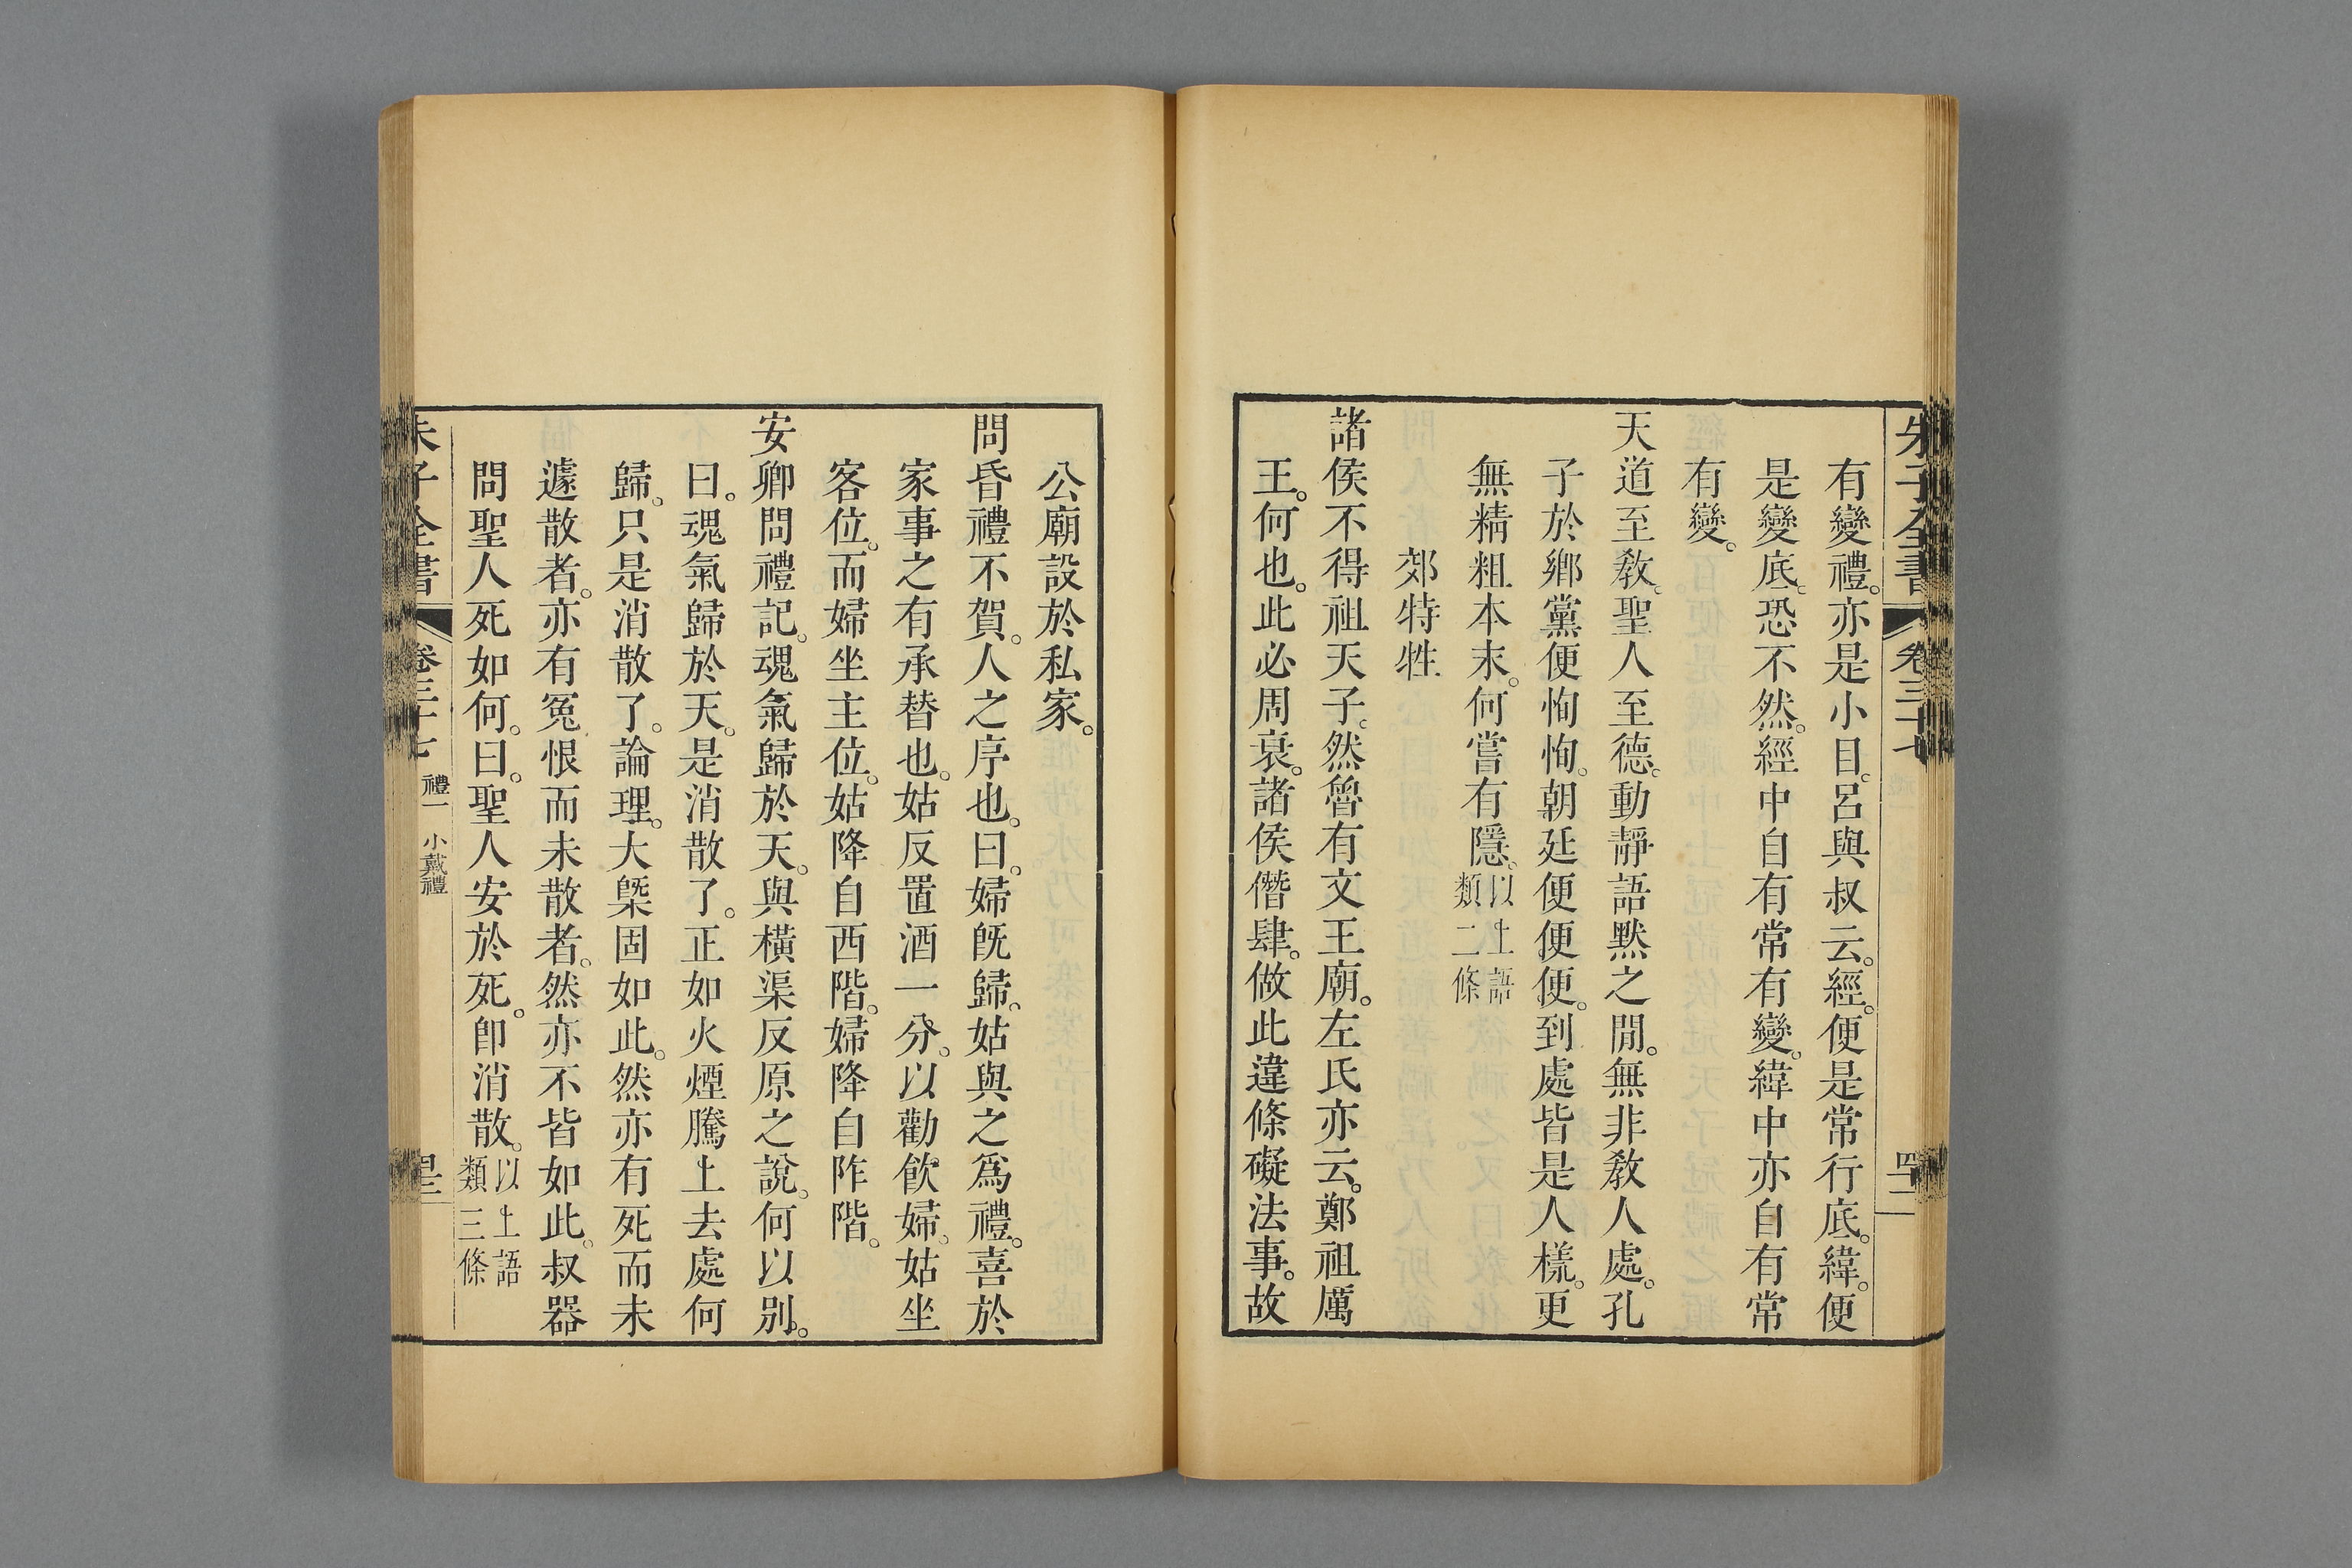 朱子全書 卷三十七 四二
有變禮。亦是小目。呂與叔云。經。便是常行底。緯。便
是變底。恐不然。經中自有常有變。緯中亦自有常
有變。
天道至敎。聖人至德。動靜語黙之閒。無非敎人處。孔
子於鄕黨便恂恂。朝廷便便便。到處皆是人樣。更
無精粗本末。何嘗有隱。以上語類二條
郊特牲
諸侯不得祖天子。然魯有文王廟。左氏亦云。鄭祖厲
王。何也。此必周衰。諸侯僭肆。做此違條礙法事。故
公廟設於私家。
問昏禮不賀。人之序也。曰。婦旣歸。姑與之爲禮。喜於
家事之有承替也。姑反置酒一分。以勸飮婦。姑坐
客位。而婦坐主位。姑降自西階。婦降自阼階。
安卿問禮記。魂氣歸於天。與橫渠反原之說。何以別。
曰。魂氣歸於天。是消散了。正如火煙騰上去處何
歸。只是消散了。論理。大槩固如此。然亦有死而未
遽散者。亦有冤恨而未散者。然亦不皆如此。叔器
問聖人死如何。曰。聖人安於死。卽消散。以上語類三條
朱子全書 卷三十七 禮一 小戴禮